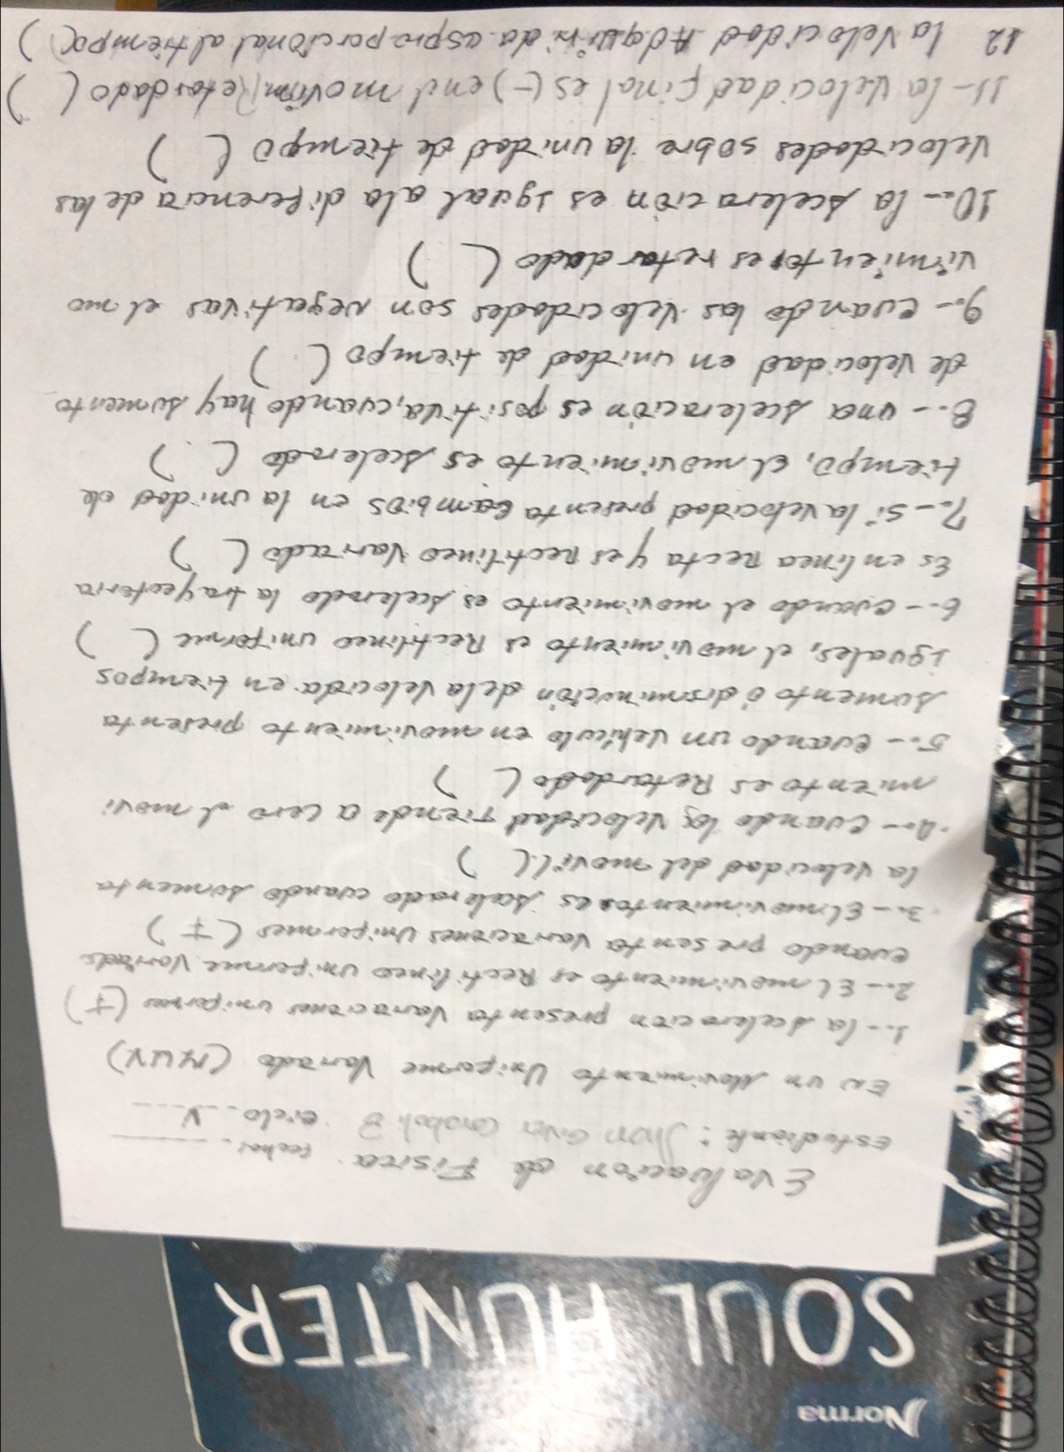 Evaluación de Fisica. fecha:
estudiante: Jhon ciclo V
En un Movimiento Uniforme Variado (MUV)
1.- la aceleracion presenta Variaciones uniformes (F)
2.- El movimiento es Rectilineo uniforme Variado
cuando presenta Variaciones Uniformes (F)
3.- El movimiento es acelerado cuando aumenta
la velocidad del movil ( )
4.- cuando la velocidad tiende a cero el movi
miento es Retardado ( )
5.- cuando un vehiculo en movimiento presenta
aumento ó disminución de la velocida en tiempos
iguales, el movimiento es Rectilineo uniforme ( )
6.- cuando el movimiento es acelerado la trayectoria
Es en linea Recta y es Rectilineo Variado ( )
7.- si la velocidad presenta cambios en la unidad de
tiempo, el movimiento es acelerado ( )
8.- una aceleración es positiva, cuando hay aumento
de velocidad en unidad de tiempo ( )
9.- cuando las velocidades son negativas el mo
vimiento es retardado ( )
10.- la aceleración es igual a la diferencia de las
velocidades sobre la unidad de tiempo ( )
11- la velocidad final es (-) en el movim Retardado ( )
12 la velocidad Adquirida es proporcional al tiempo ( )
SOUL HUNTER
Norma